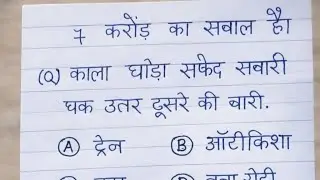 7 करोड़ का सवाल है।
(Q) काला घोड़ा सफेद सवारी
एक उतर दूसरे की बारी.
Ⓐ ट्रेन Ⓑ ऑटीकिशा